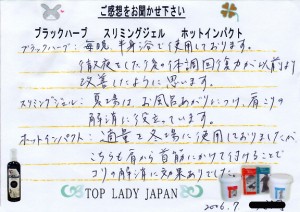 ご感想をお聞かせ下さい
ブラックハーブ スリミングジェル ホットインパクト
ブラックハーブ：毎晩、半身浴で使用しております。
徹夜とした後の体調回復力が以前より
改善したように思います。
スリミングジェル：夏場は、お風呂あがりにつけ、肩こりの
解消に役立っています。
ホットインパクト：適量を冬場に使用しておりましたが、
こちらも肩から首筋にかけて付けることで
コリの解消に効果ありでした。
TOP LADY JAPAN
2006.7